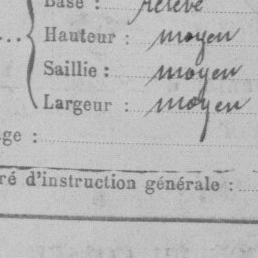 Base : relevé
Hauteur : moyen
Saillie : moyen
Largeur : moyen
ge :
ré d'instruction générale :